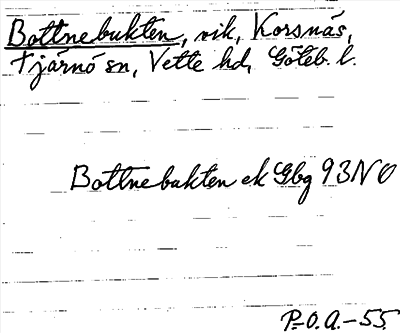 Bottnebukten, vik, Korsnäs,
Tjärnö sn, Vette hd, Göteb. l.
Bottnebukten ek Gbg 93 NO
P.-O.A.-55